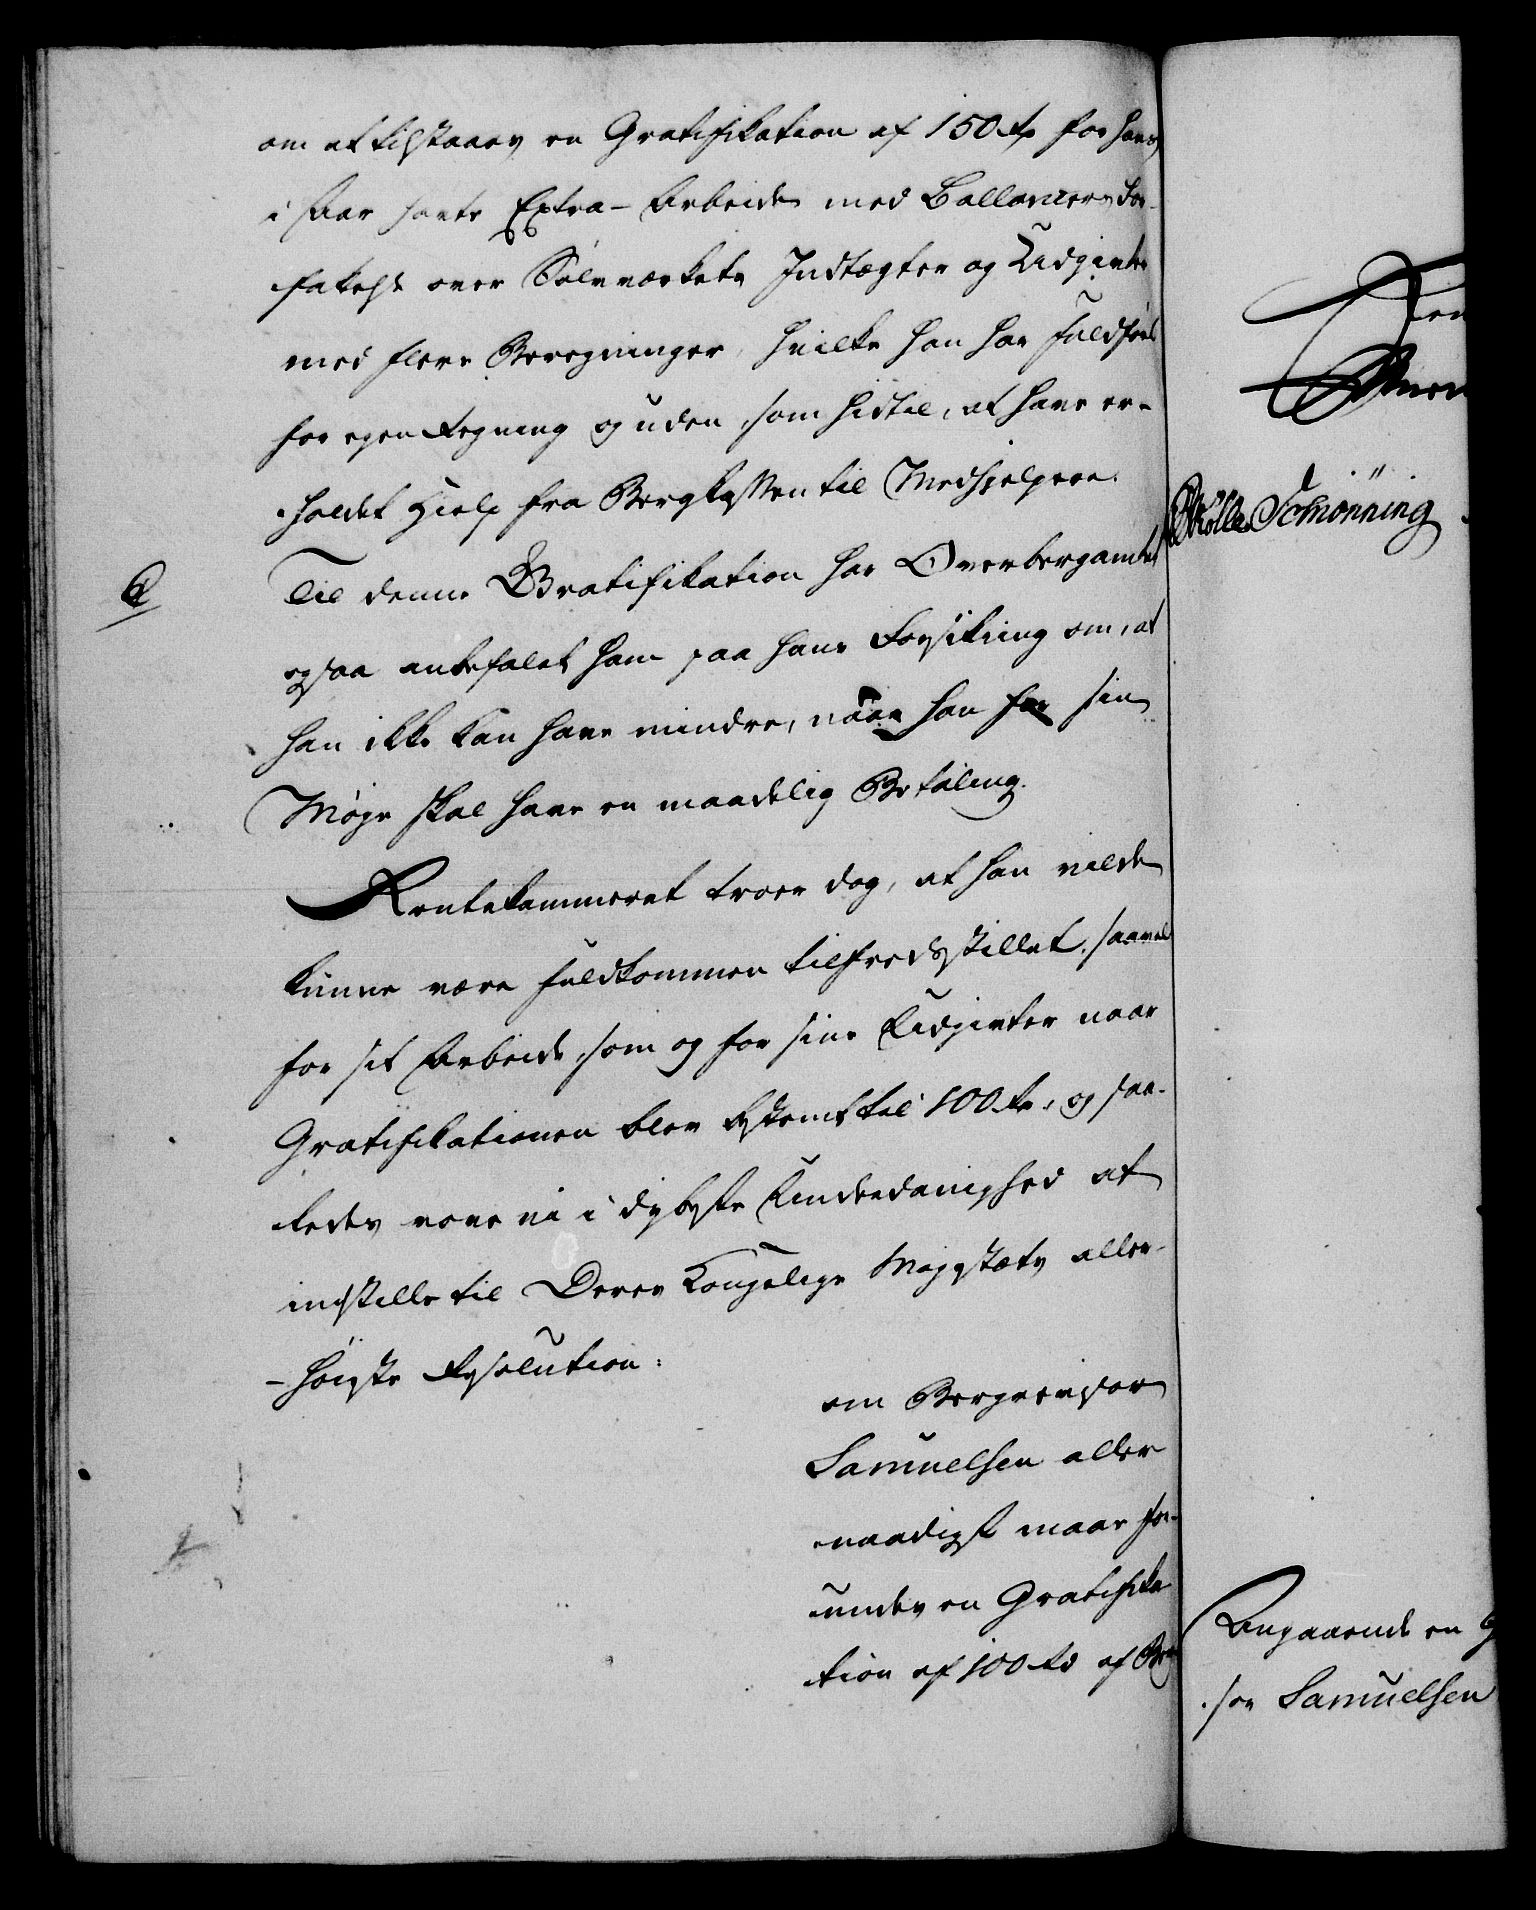 om at tilstaaes en Gratifikation af 150 rd for hans
i Aar havte Extra-Arbeide med Ballancens For-
fattelse over Sølvværkets Indtægter og Udgivter
med flere Beregninger, hvilke han har fuldført
for egen Regning og uden, som hidtil, at have er-
holdet Hielp fra Bergkassen til Medhjelpere.
Til denne Gratifikation har Overbergamtet
ogsaa anbefalet ham paa hans Forsikring om, at
han ikke kan have mindre, naar han for sin
Møye skal have en maadelig Betaling.
Rentekammeret troer dog, at han vilde
kunne være fuldkommen tilfredsstillet, saavel
for sit Arbeide, som og for sine Udgivter naar
Gratifikationen blev bestemt til 100 rd, og saa-
ledes vove vi i dybeste Underdanighed at
indstille til Deres Kongelige Majestæts aller-
-høieste Resolution:
om Bergrevisor
Samuelsen aller
naadigst maae for-
undes en Gratifika
tion af 100 rd af Berg
Schiønning
Angaaende en G
sor Samuelsen